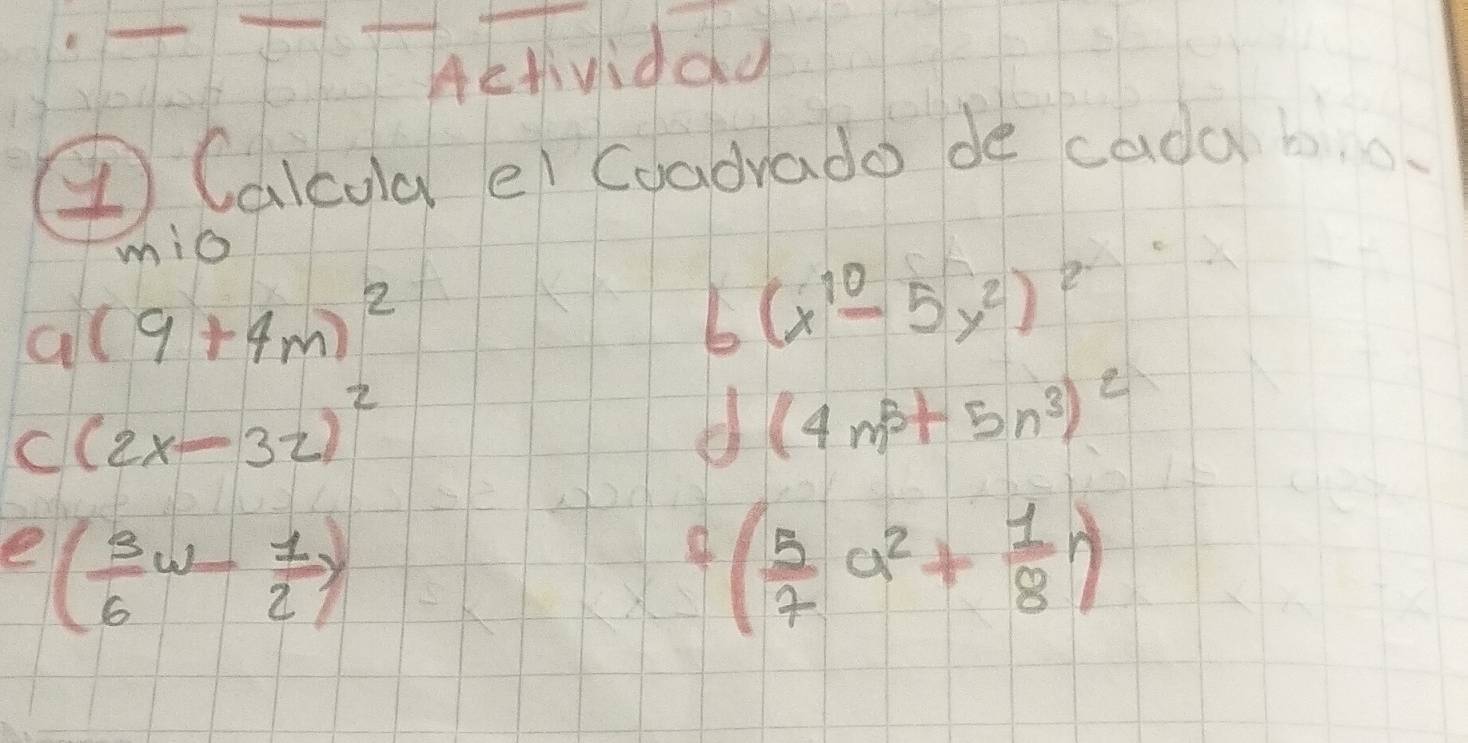 Actividad
1 Calcula el Cuadrado de cada bino-
mio
a(9+4m)²
b(x¹⁰-5y²)²
c(2x-3z)²
d(4m³+5n³)²
e(3/6w-1/2y)
f(5/7a²+1/8n)